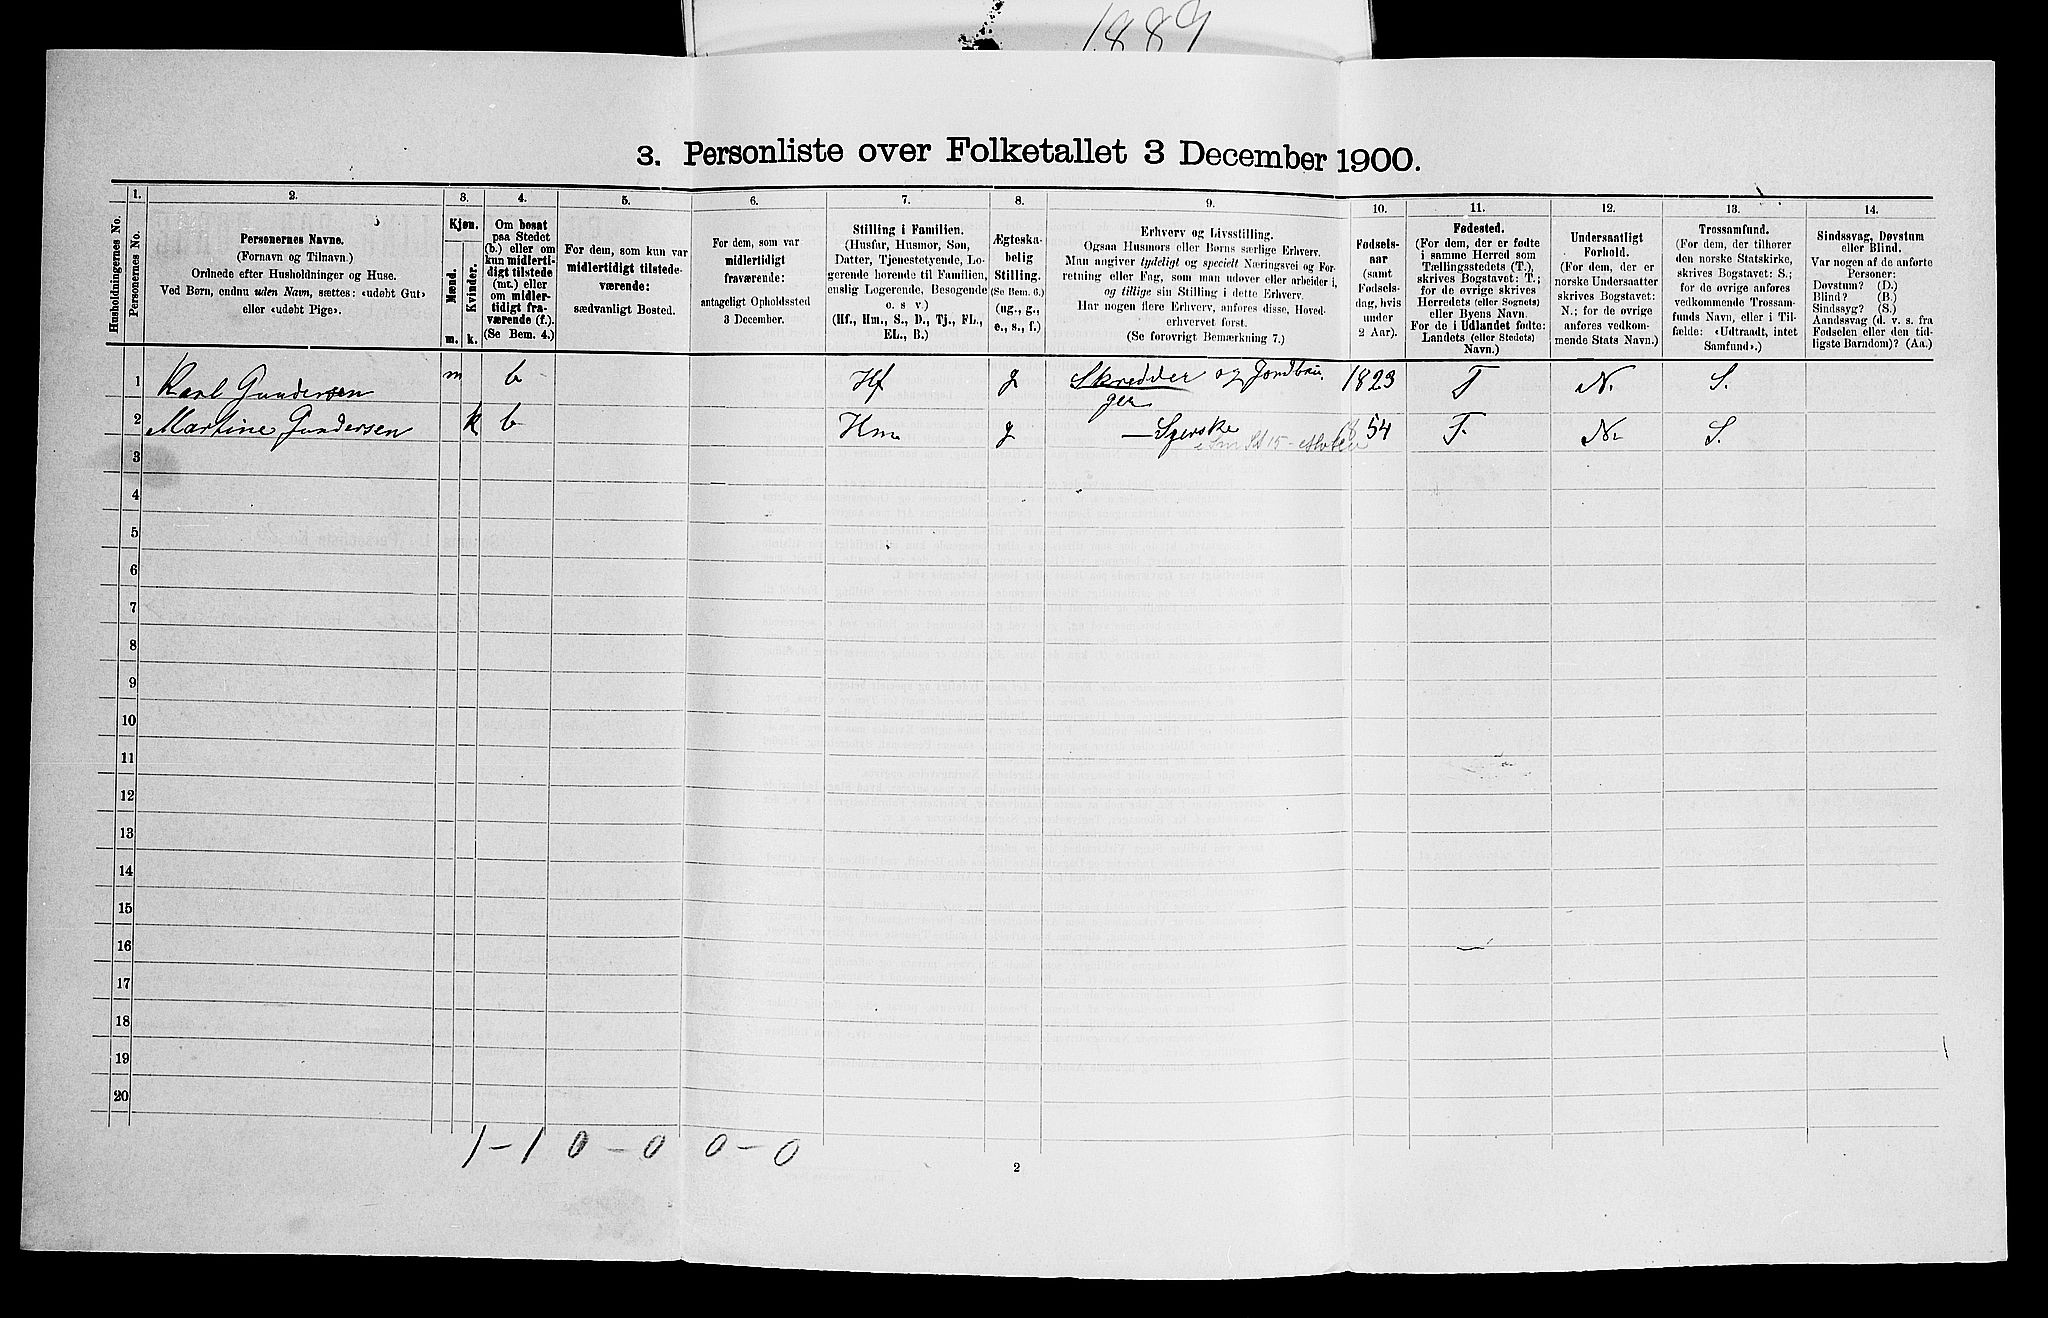 1889
3. Personliste over Folketallet 3 December 1900.
Husholdningernes No.
1.
Personernes No.
2.
Personernes Navne.
(Fornavn og Tilnavn.)
Ordnede efter Husholdninger og Huse.
Ved Børn, endnu uden Navn, sættes: «udøbt Gut»
eller «udøbt Pige».
3.
Kjøn.
Mænd.
Kvinder.
m. k.
4.
Om bosat
paa Stedet
(b.) eller om
kun midler-
tidigt tilstede
(mt.) eller
om midler-
tidigt fra-
værende (f.).
(Se Bem. 4.)
5.
For dem, som kun var
midlertidigt tilstede-
værende:
sædvanligt Bosted.
6.
For dem, som var
midlertidigt
fraværende:
antageligt Opholdssted
3 December.
7.
Stilling i Familien.
(Husfar, Husmor, Søn,
Datter, Tjenestetyende, Lo-
gerende hørende til Familien,
enslig Logerende, Besøgende
o. s v.)
(Hf., Hm., S., D., Tj., FL.,
EL., B.)
8.
Ægteska-
belig
Stilling.
(Se Bem. 6.)
(ug., g.,
e., s., f.)
9.
Erhverv og Livsstilling.
Ogsaa Husmors eller Børns særlige Erhverv.
Man angiver tydeligt og specielt Næringsvei og For-
retning eller Fag, som man udøver eller arbeider i,
og tillige sin Stilling i dette Erhverv.
Har nogen flere Erhverv, anføres disse, Hoved-
erhvervet først.
(Se forøvrigt Bemærkning 7.)
10.
Fødsels-
aar
(samt
Fødsels-
dag, hvis
under
2 Aar).
11.
Fødested.
(For dem, der er fødte
i samme Herred som
Tællingsstedets (T.),
skrives Bogstavet: T.;
for de øvrige skrives
Herredets (eller Sognets)
eller Byens Navn.
For de i Udlandet fødte:
Landets (eller Stedets)
Navn.)
12.
Undersaatligt
Forhold.
(For dem, der er
norske Undersaatter
skrives Bogstavet:
N.; for de øvrige
anføres vedkom-
mende Stats Navn.)
13.
Trossamfund.
(For dem, der tilhører
den norske Statskirke,
skrives Bogstavet: S.;
for de øvrige anføres
vedkommende Trossam-
funds Navn, eller i Til-
fælde: «Udtraadt, intet
Samfund».)
14.
Sindssvag, Døvstum
eller Blind.
Var nogen af de anførte
Personer:
Døvstum? (D.)
Blind? (B.)
Sindssyg? (S.)
Aandssvag (d. v. s. fra
Fødselen eller den tid-
ligste Barndom)? (Aa.)
1 Karl Gundersen m b Hf g Skredder og Jordbru- 1823 T N. S.
ger
2 Martine Gundersen k b Hm g 54 T. N. S.
3
4
5
6
7
8
9
10
11
12
13
14
15
16
17
18
19
20
1-1 0-0 0-0
2